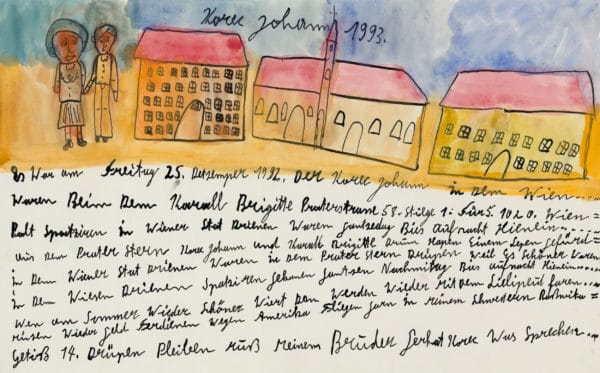 Korec Johann 1993.
Es War am Freitag 25. Detsemper 1992. Der Korec Johann in dem Wien....
Waren Beim Dem Karall Brigitte Praterstrasse 58-Stiege 1-Tür 5. 1020. Wien=
Palt Spatziren in Wiener Stat Drienen Waren Bies aufnacht Hienein....
aus dem Prater Stern Korec Johann und Karall Brigitte Drum Hapen Einem Lepen
in Dem Wiener Stat Drienen Waren in dem Prater Stern Drüpen Weil Es Schöner Waren
in Dem Wienen Drienen Spatziren Nachmittag Bies aufnacht Hienein....
Wen am Sommer Wieder Schöner Wiert Dan Werden Wieder Mit dem Liliput faren...
Wieder geld Ferdienen Wegen Amerika fliegen in meinem Schwestern
14. Drüpen Pleiben meinem Bruder Korec Was Sprechen..